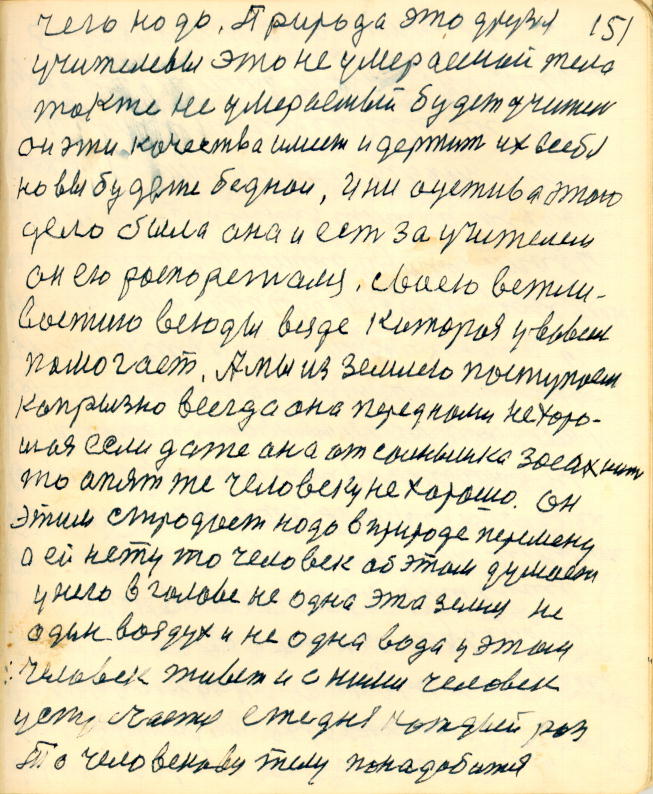 чего надо. Природа это друзья 151
учителевы это не умераемой тела
также не умераемый будет учител
он эти качества имеет и держит их всебя
но вы будете бедной, и ни
дело была она и ест за учителем
он ею роспорежался. своею вежли-
востию всюды везде которая
помогает. А мы из землею поступаем
капризно всегда она перед нами не хоро-
шая если даже она от солнышка засохнит
то опят же человеку не хорошо. он
этим страдает надо в природе перемену
а ей нету то человек об этом думает
у него в голове не одна эта земля не
один воздух и не одна вода у этом
человек живет и с ними человек
устречается ежедня каждый раз
То человекову телу понадобится